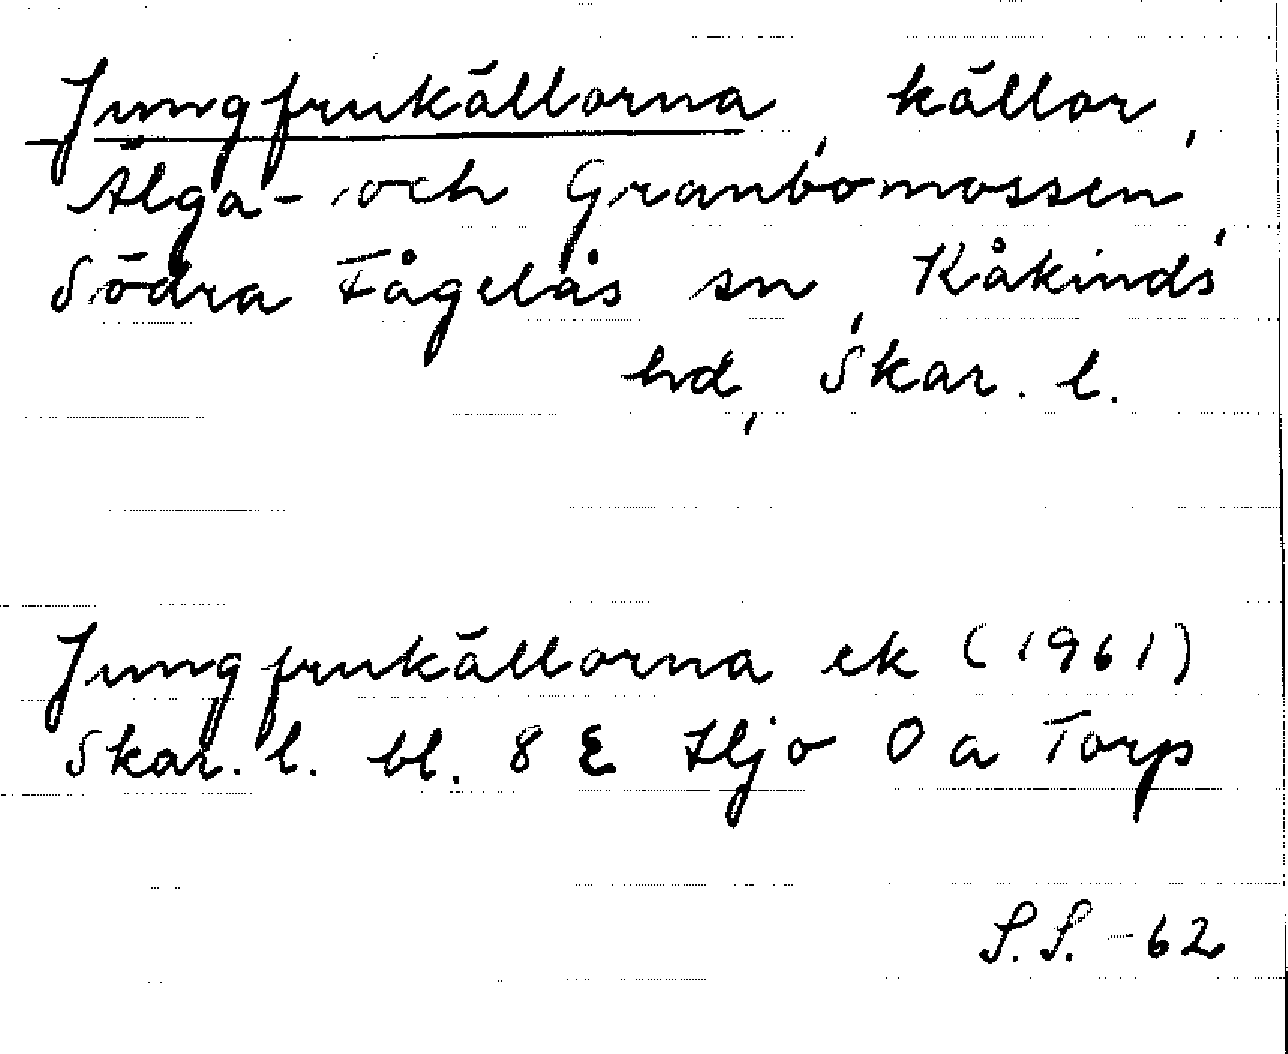 Jungfrukällorna, källor,
Älga- och Granbomossen,
Södra Fågelås sn, Kåkinds
hd, Skar. l.
Jungfrukällorna ek (1961)
Skar. l. bl. 8 E Hjo 0 a Torp
S.S. -62